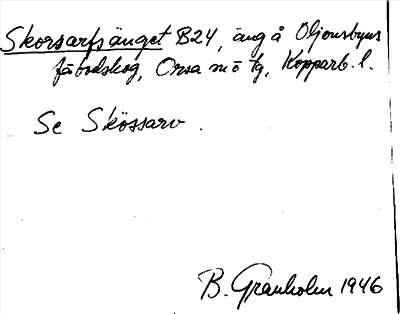 Skorsarfsänget B24, äng å Oljonsbyns
fäbodskog, Orsa sn o tg, Kopparb. l.
Se Skössarv.
B. Granholm 1946